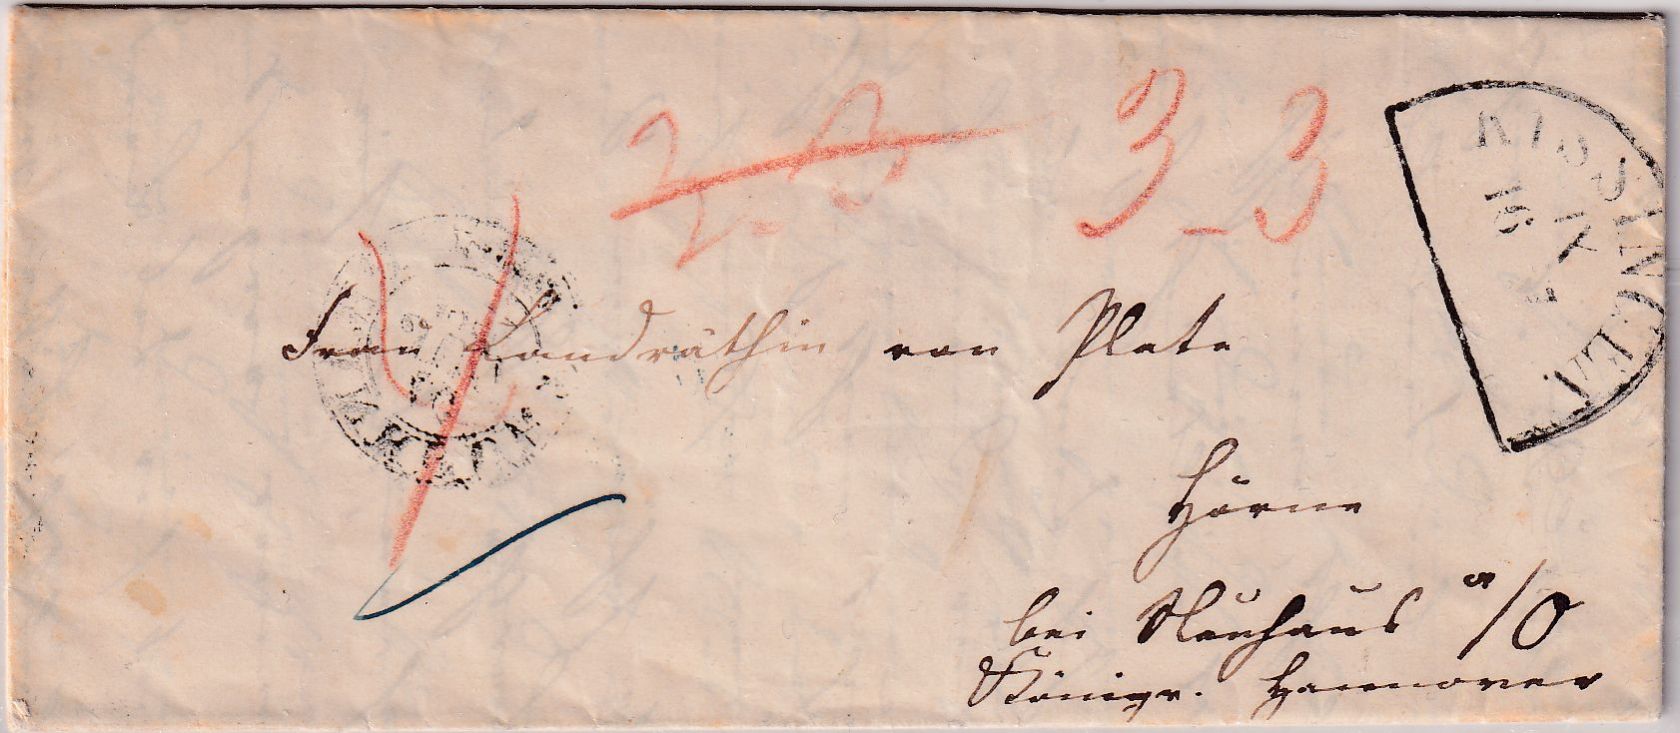 3 - 3
KISSINGEN
Frau Landräthin von Plate
Hörne
bei Neuhaus a/O
Königr. Hannover